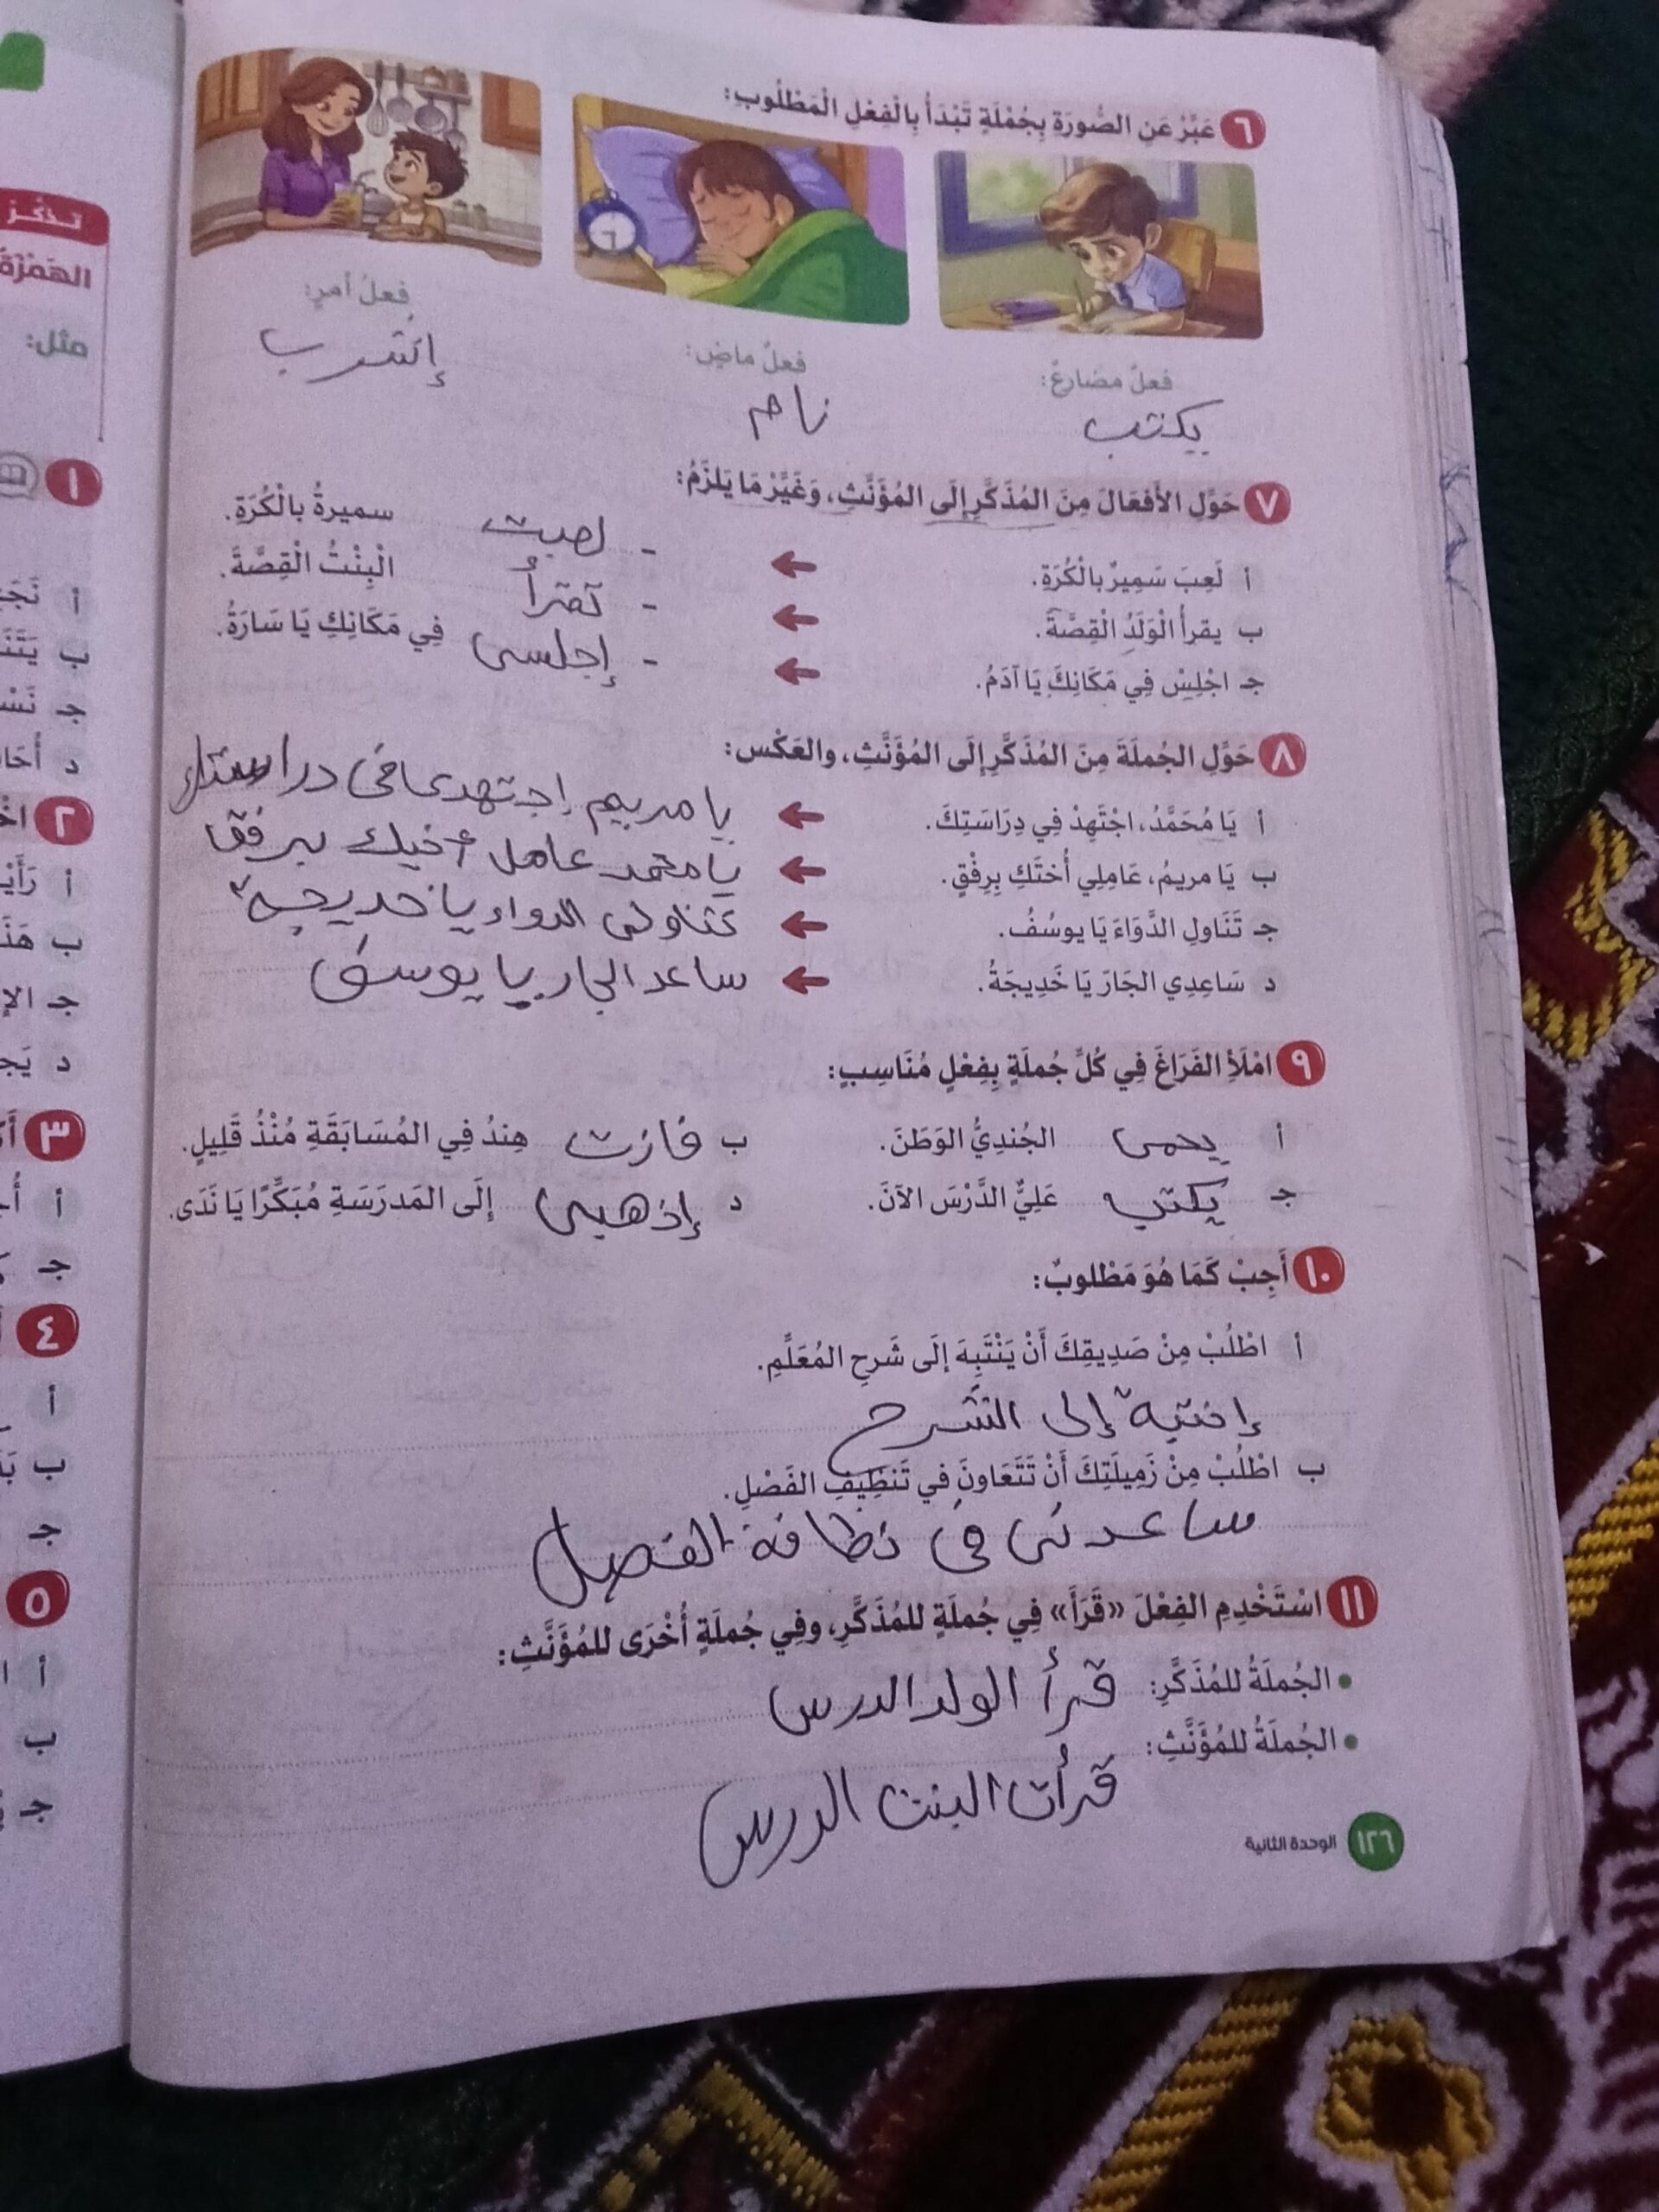 ٦ عَبِّرْ عَنِ الصُّورَةِ بِجُمْلَةٍ تَبْدَأُ بِالْفِعْلِ الْمَطْلُوبِ:
فعلٌ مضارعٌ: فعلٌ ماضٍ: فعلُ أمرٍ:
يكتب نام إشرب
٧ حَوِّلِ الأَفْعَالَ مِنَ المُذَكَّرِ إِلَى المُؤَنَّثِ، وَغَيِّرْ مَا يَلزَمُ:
أ لَعِبَ سَمِيرٌ بالْكُرَةِ. - لعبت سميرةُ بالْكُرَةِ.
ب يقرأُ الْوَلَدُ الْقِصَّةَ. - تقرأ الْبِنْتُ الْقِصَّةَ.
جـ اجْلِسْ فِي مَكَانِكَ يَا آدَمُ. - إجلسى فِي مَكَانِكِ يَا سَارَةُ.
٨ حَوِّلِ الجُملَةَ مِنَ المُذَكَّرِ إِلَى المُؤَنَّثِ، والعَكْس:
أ يَا مُحَمَّدُ، اجْتَهِدْ فِي دِرَاسَتِكَ. يا مريم إجتهدى فى دراستك
ب يَا مريمُ، عَامِلِي أُختَكِ بِرِفْقٍ. يا محمد عامل أخيك برفق
جـ تَنَاولِ الدَّوَاءَ يَا يوسُفُ. تناولى الدواء يا خديجة
د سَاعِدِي الجَارَ يَا خَدِيجَةُ. ساعد الجار يا يوسف
٩ امْلَأِ الفَرَاغَ فِي كُلِّ جُملَةٍ بِفِعْلٍ مُنَاسِبٍ:
أ يحمى الجُندِيُّ الوَطَنَ. ب فازت هِندُ فِي المُسَابَقَةِ مُنْذُ قَلِيلٍ.
جـ يكتب عَلِيٌّ الدَّرْسَ الآنَ. د إذهبى إلَى المَدرَسَةِ مُبَكِّرًا يَا نَدَى.
١٠ أَجِبْ كَمَا هُوَ مَطْلوبٌ:
أ اطْلُبْ مِنْ صَدِيقِكَ أَنْ يَنْتَبِهَ إلَى شَرحِ المُعَلِّمِ.
إنتبة إلى الشرح
ب اطْلُبْ مِنْ زَمِيلَتِكَ أَنْ تَتَعَاونَ في تَنظِيفِ الفَصْلِ.
ساعدنى فى نظافة الفصل
١١ اسْتَخْدِمِ الفِعْلَ «قَرَأَ» فِي جُملَةٍ للمُذَكَّرِ، وفِي جُملَةٍ أُخْرَى للمُؤَنَّثِ:
• الجُملَةُ للمُذَكَّرِ: قرأ الولد الدرس
• الجُملَةُ للمُؤَنَّثِ:
قرأت البنت الدرس
١٢٦ الوحدة الثانية
تـذكَّـر
الهَمْزَةُ
مثل:
١
أ
ب
جـ
د
٢
أ
ب هَذَ
جـ
د
٣
أ
جـ
٤
أ
ب
جـ
٥
أ
ب
جـ